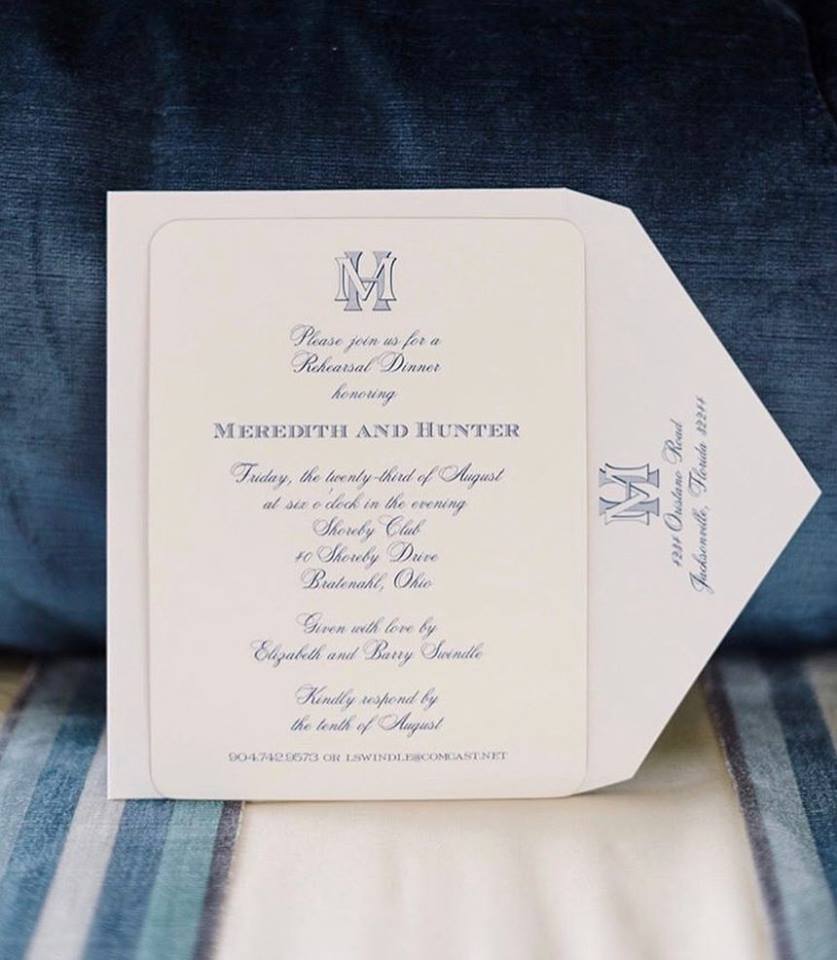 MH
Please join us for a
Rehearsal Dinner
honoring
MEREDITH AND HUNTER
Friday, the twenty-third of August
at six o'clock in the evening
Shoreby Club
40 Shoreby Drive
Bratenahl, Ohio
Given with love by
Elizabeth and Barry Swindle
Kindly respond by
the tenth of August
904.742.9573 OR LSWINDLE@COMCAST.NET
MH
1234 Road
Jacksonville, Florida